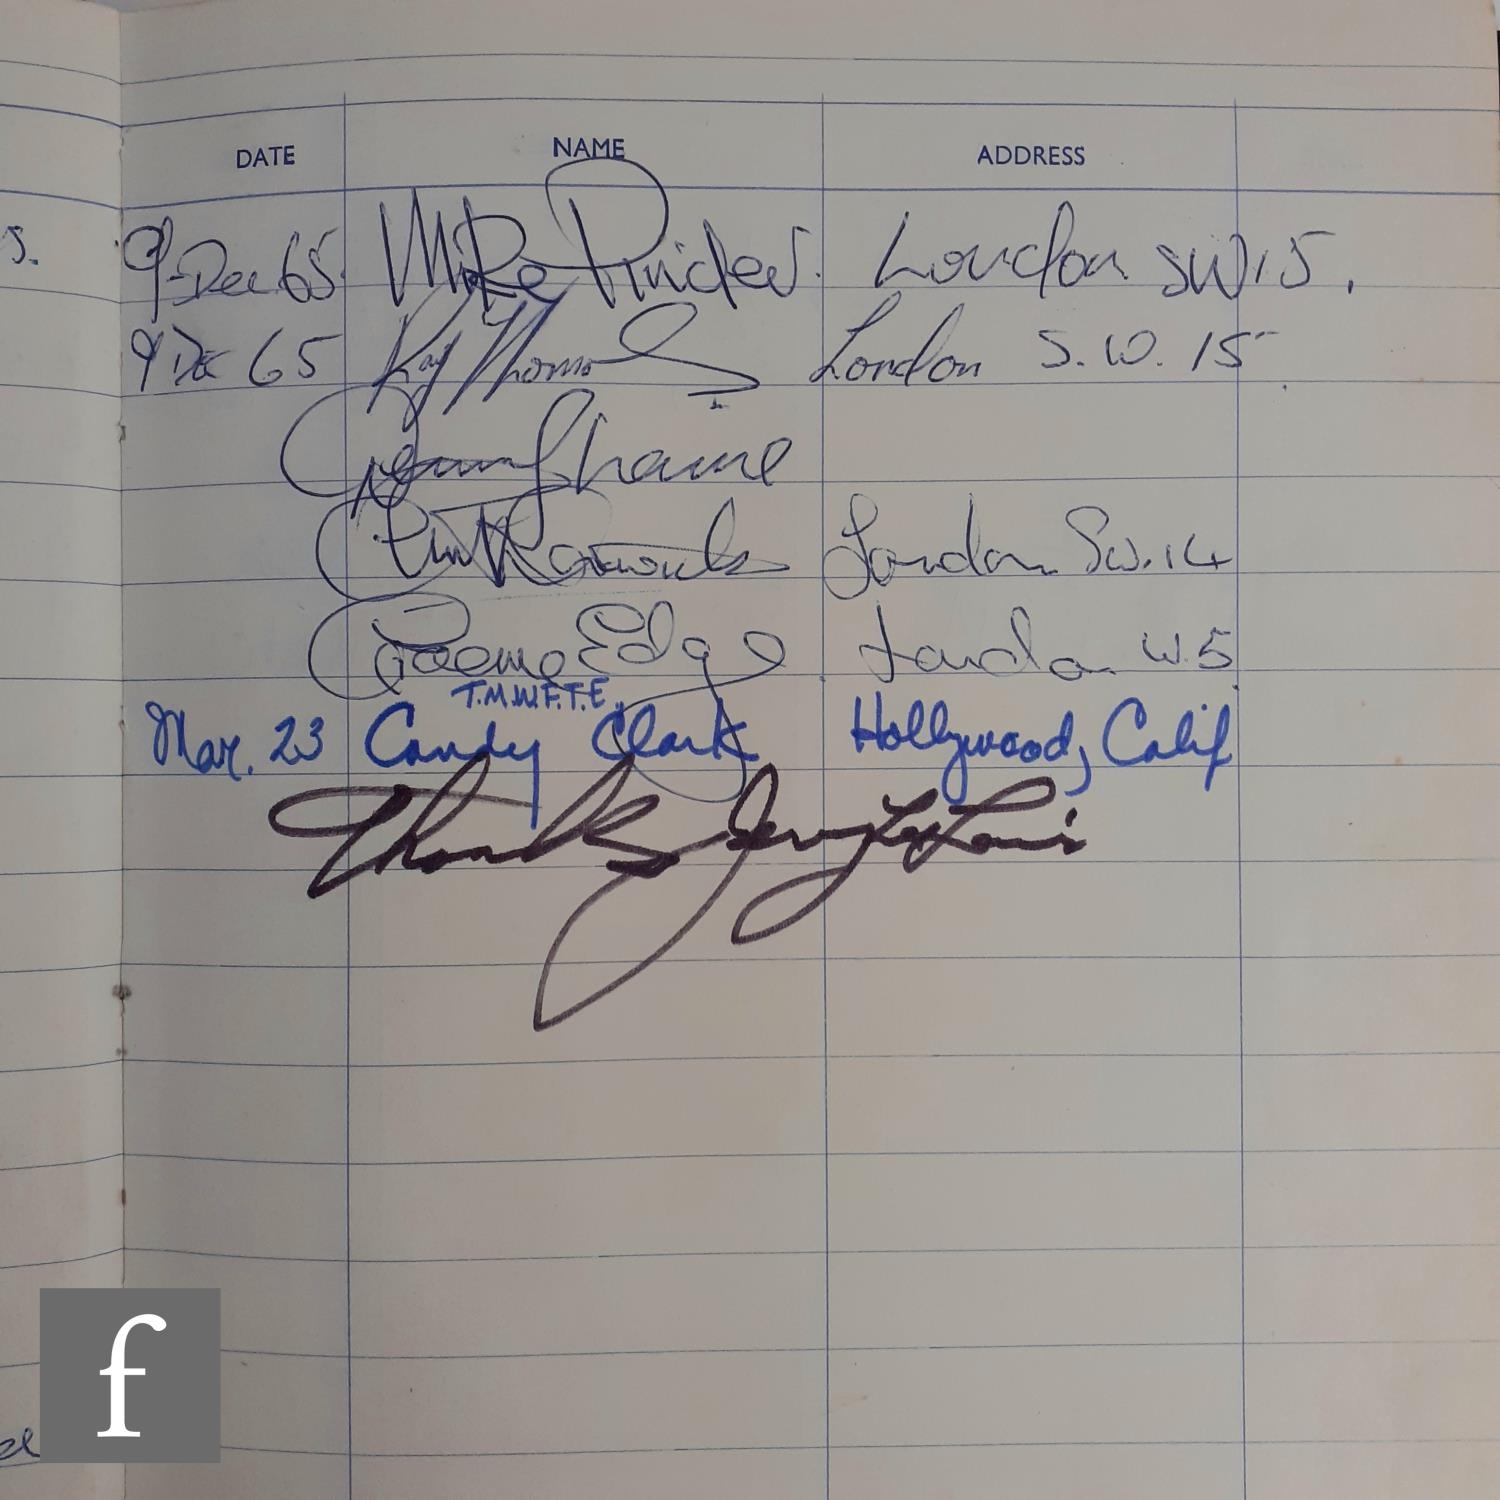 DATE NAME ADDRESS
s.
9 Dec 65 Mike Pinder. London SW15.
9 Dec 65 Ray Thomas London S.W. 15
Denny Laine
Clint Warwick London SW.14
Graeme Edge London W.5
T.M.W.F.T.E.
Mar. 23 Candy Clark Hollywood, Calif
Thanks Jerry Lee Lewis
f